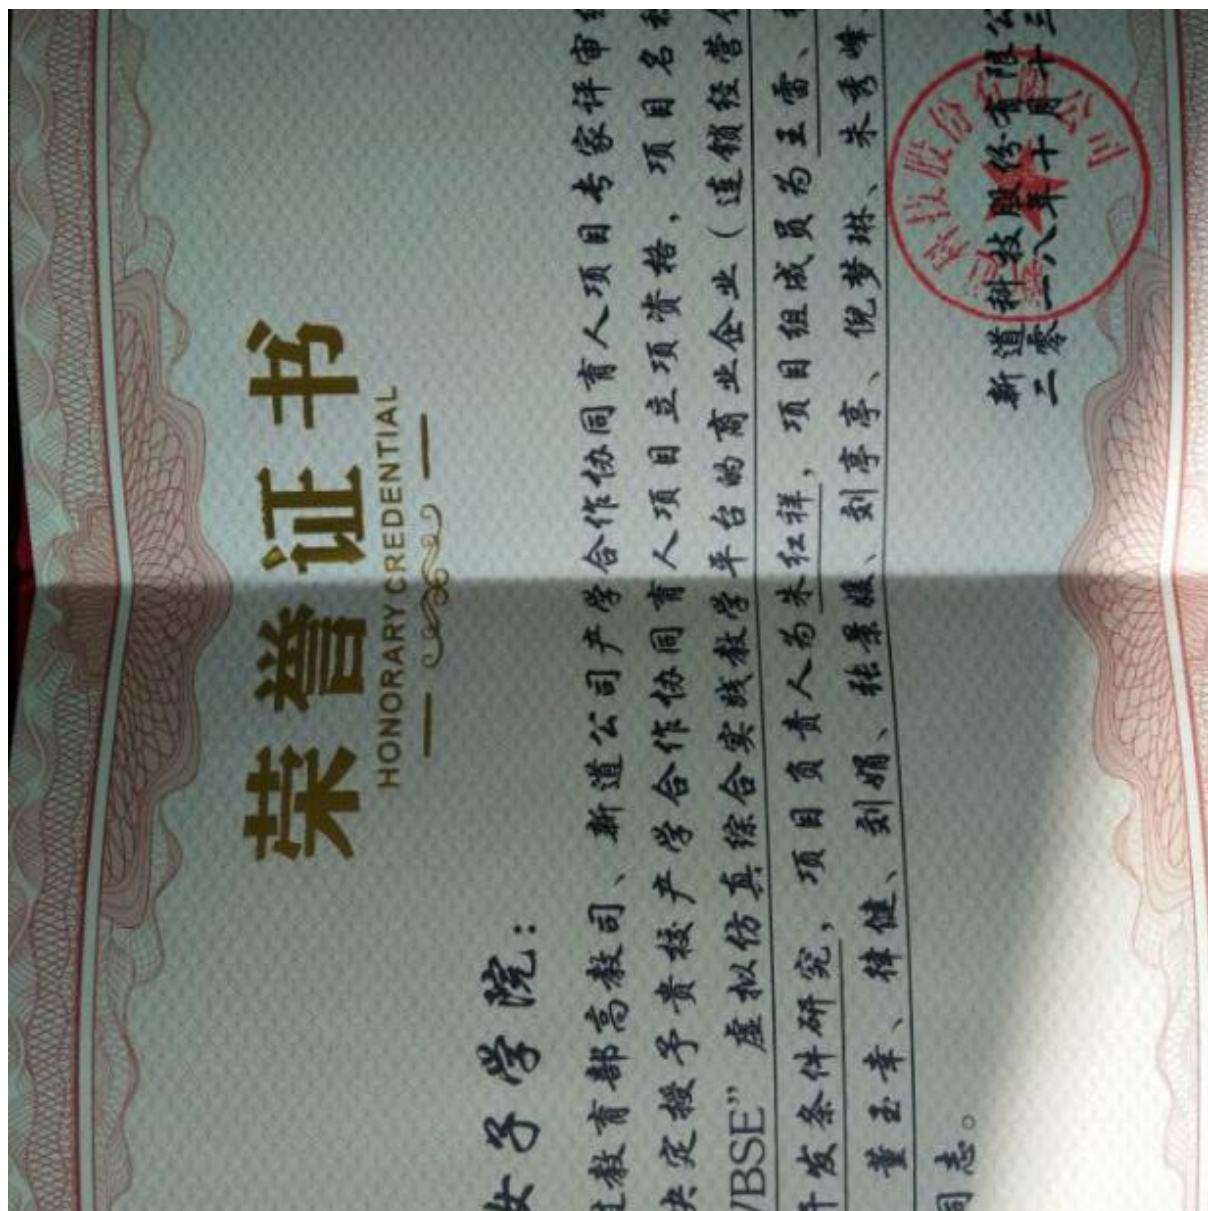 荣誉证书
HONORARY CREDENTIAL
女子学院：
教育部高教司、新道公司产学合作协同育人项目专家评审
决定授予贵校产学合作协同育人项目立项资格，项目名称
VBSE”虚拟仿真综合实践教学平台的商业企业（连锁经营
开发条件研究，项目负责人为朱红祥，项目组成员为王雷、
董玉幸、律健、刘娟、张景媛、刘亭亭、倪梦琳、朱秀峰、
同志。
新道科技股份有限公
二零一八年十月十三